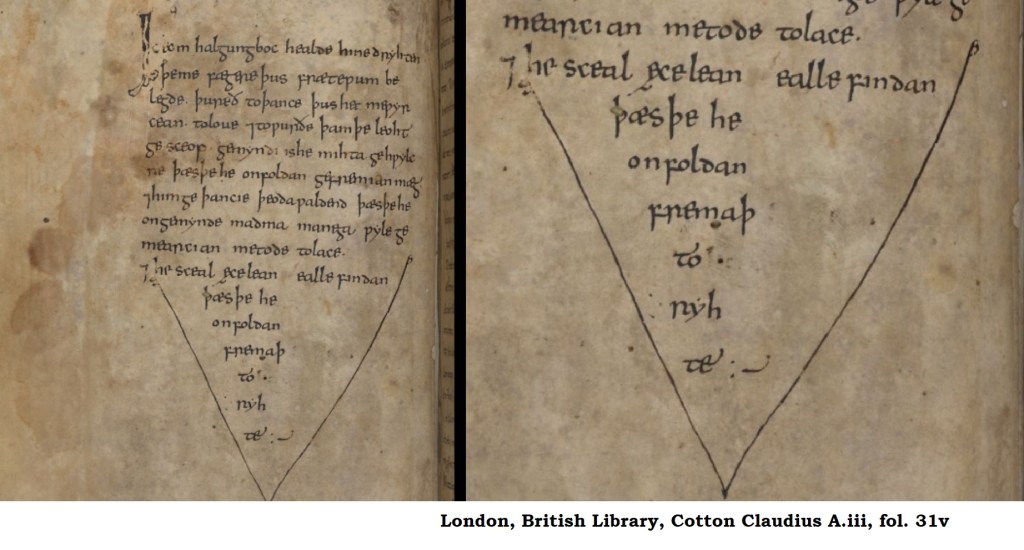 Ic eom halgungboc healde hine dryhten
þeme fægere þus frætewum be
legde. þureð toþance þus het me wyr
cean. toloue ⁊towurðe þam þe leoht
ge sceop. gemyndi is he mihta gehwylc
re þæs þe he onfoldan gefremian mæg
⁊him geþancie þeoda waldend þæs þe he
ongemynde madma manega wyle ge
mearcian metode tolace.
⁊he sceal ecelean ealle findan
þæs þe he
onfoldan
fremaþ
to
ryh
te :~
mearcian metode tolace.
⁊he sceal ecelean ealle findan
þæs þe he
onfoldan
fremaþ
to
ryh
te :~
London, British Library, Cotton Claudius A.iii, fol. 31v